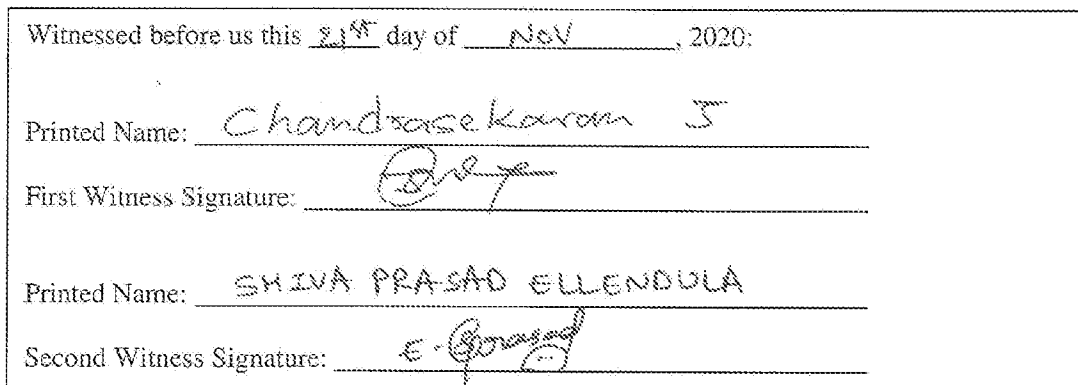 Witnessed before us this 21st day of NOV, 2020:
Printed Name: Chandrasekaran J
First Witness Signature:
Printed Name: SHIVA PRASAD ELLENDULA
Second Witness Signature: E. Prasad